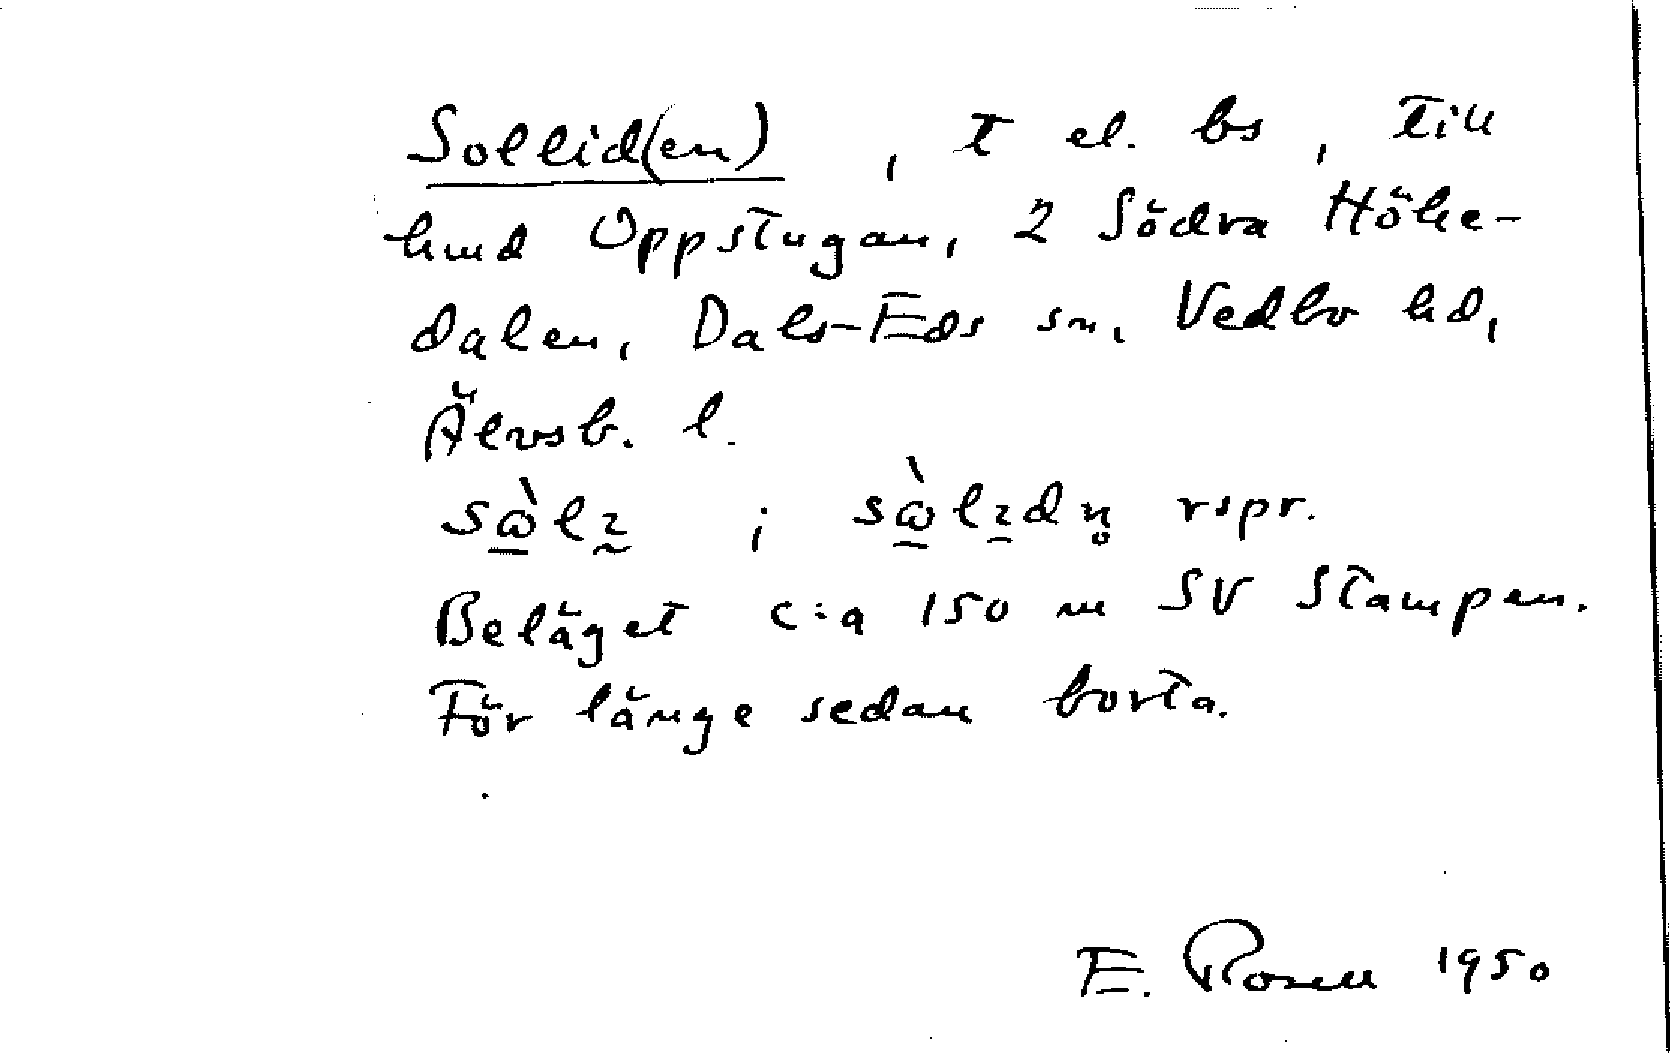 Sollid(en), t el. bs, till
hmd Uppstugan, 2 Södra Höke-
dalen, Dals-Eds sn, Vedbo hd,
Älvsb. l.
sὼlɩ ; sὼlɩdn̥ rspr.
Beläget c:a 150 m SV Stampen.
För länge sedan borta.
E. Rosell 1950